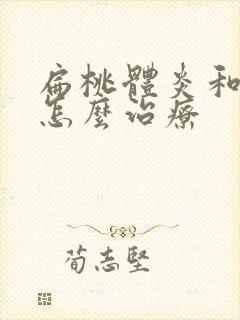 扁桃體炎和
怎麼治療
荀志堅